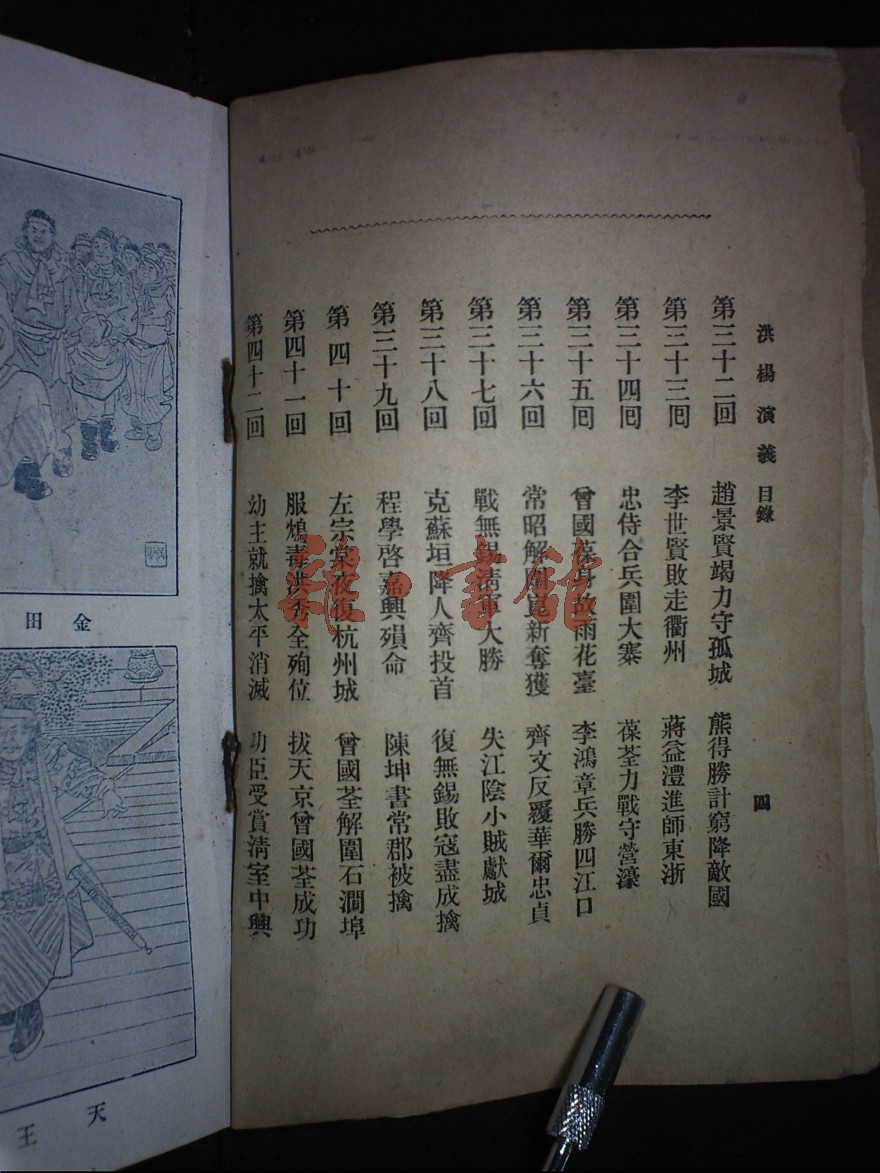 洪楊演義 目錄 四
第三十二回 趙景賢竭力守孤城 熊得勝計窮降敵國
第三十三回 李世賢敗走衢州 蔣益澧進師東浙
第三十四回 忠侍合兵圍大寨 葆荃力戰守營濠
第三十五回 曾國葆身故雨花臺 李鴻章兵勝四江口
第三十六回 常昭解圍崑新奪獲 齊文反覆華爾忠貞
第三十七回 戰無錫淸軍大勝 失江陰小賊獻城
第三十八回 克蘇垣降人齊投首 復無錫敗寇盡成擒
第三十九回 程學啓嘉興殞命 陳坤書常郡被擒
第四十回 左宗棠夜復杭州城 曾國荃解圍石澗埠
第四十一回 服鴆毒洪秀全殉位 拔天京曾國荃成功
第四十二回 幼主就擒太平消滅 功臣受賞淸室中興
金田
天王